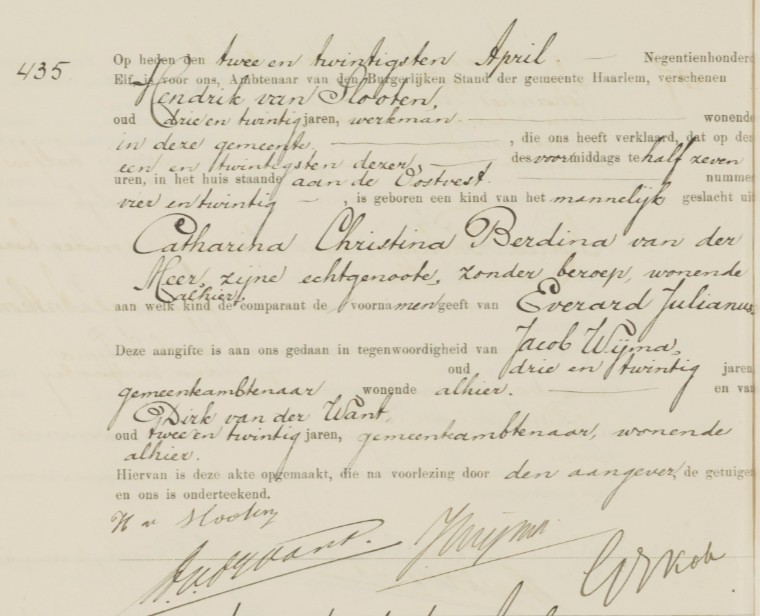 435
Op heden den twee en twintigsten April. Negentienhonderd
Elf is voor ons, Ambtenaar van den Burgerlijken Stand der gemeente Haarlem, verschenen
Hendrik van Slooten,
oud drie en twintig jaren, werkman wonende
in deze gemeente. , die ons heeft verklaard, dat op den
een en twintigsten dezer, des voormiddags te half zeven
uren, in het huis staande aan de Oostvest. nummer
vier en twintig , is geboren een kind van het mannelijk geslacht uit
Catharina Christina Berdina van der
Meer, zijne echtgenoote, zonder beroep, wonende
alhier,
aan welk kind de comparant de voornamen geeft van Everard Julianus.
Deze aangifte is aan ons gedaan in tegenwoordigheid van Jacob Wijma,
oud drie en twintig jaren
gemeenteambtenaar wonende alhier. en van
Dirk van der Want,
oud twee en twintig jaren, gemeenteambtenaar, wonende
alhier.
Hiervan is deze akte opgemaakt, die na voorlezing door den aangever, de getuigen
en ons is onderteekend.
H v Slooten
D. v. d. Want. J Wijma